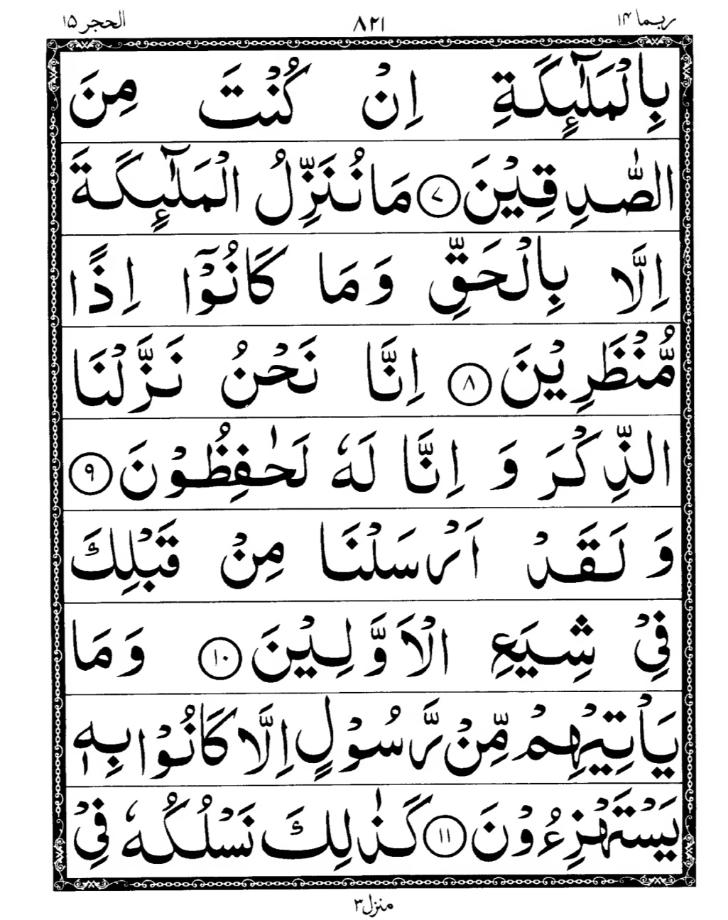 ربما ۱۴ ۸۲۱ الحجر ۱۵
بِالْمَلٰٓئِكَةِ اِنْ كُنْتَ مِنَ
الصّٰدِقِيْنَ ۷ مَا نُنَزِّلُ الْمَلٰٓئِكَةَ
اِلَّا بِالْحَقِّ وَمَا كَانُوْٓا اِذًا
مُّنْظَرِيْنَ ۸ اِنَّا نَحْنُ نَزَّلْنَا
الذِّكْرَ وَ اِنَّا لَهٗ لَحٰفِظُوْنَ ۹
وَ لَقَدْ اَرْسَلْنَا مِنْ قَبْلِكَ
فِيْ شِيَعِ الْاَوَّلِيْنَ ۱۰ وَمَا
يَاْتِيْهِمْ مِّنْ رَّسُوْلٍ اِلَّا كَانُوْا بِهٖ
يَسْتَهْزِءُوْنَ ۱۱ كَذٰلِكَ نَسْلُكُهٗ فِيْ
منزل ۳